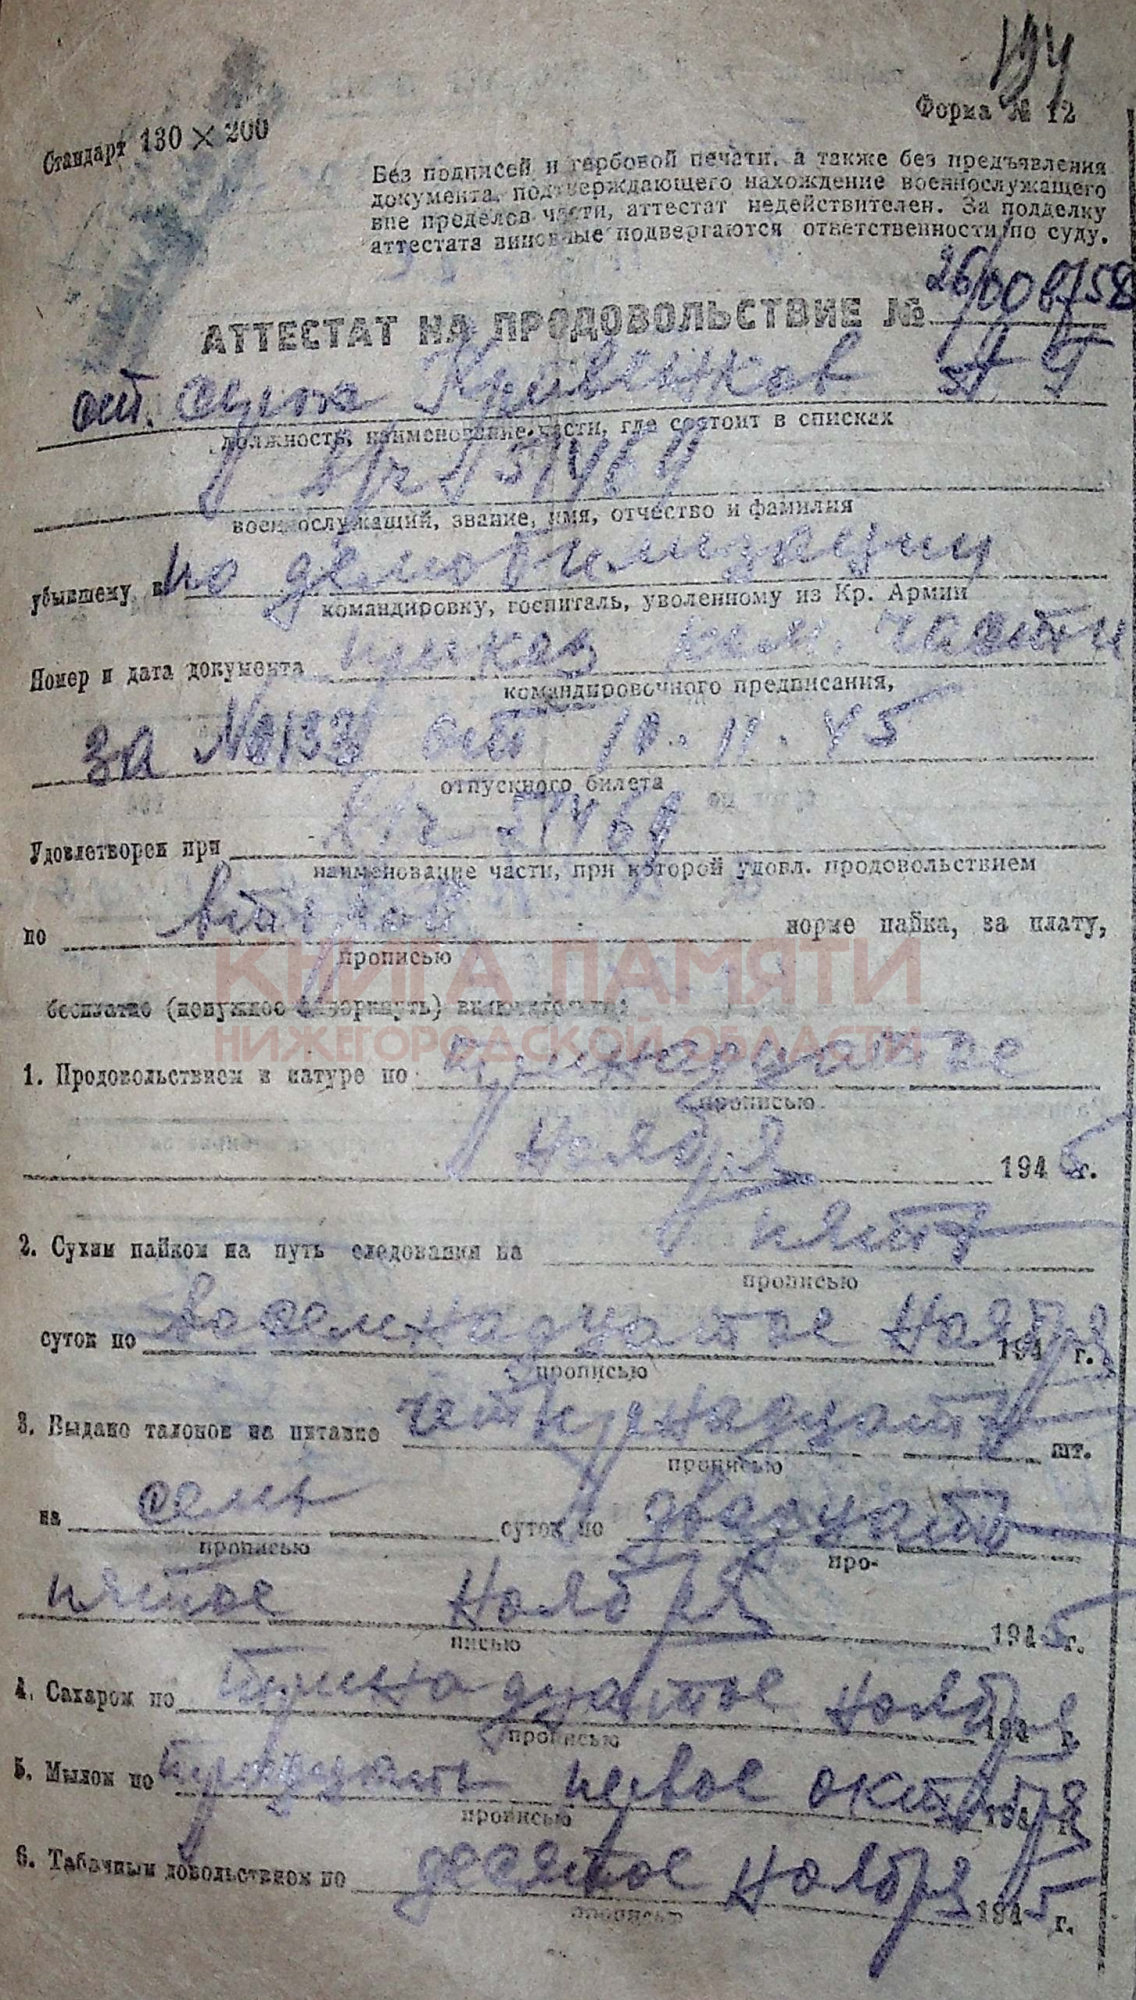 194
Стандарт 130 × 200
Форма № 12
Без подписей и гербовой печати, а также без предъявления
документа, подтверждающего нахождение военнослужащего
вне пределов части, аттестат недействителен. За подделку
аттестата виновные подвергаются ответственности по суду.
АТТЕСТАТ НА ПРОДОВОЛЬСТВИЕ №
ст. сержа Кривенков А Г
должность, наименование части, где состоит в списках
в/ч 57469
военнослужащий, звание, имя, отчество и фамилия
убывшему в по демобилизации
командировку, госпиталь, уволенному из Кр. Армии
Номер и дата документа приказ ком. части
командировочного предписания,
за № 0133 от 10.11.45
отпускного билета
Удовлетворен при в/ч 57469
наименование части, при которой удовл. продовольствием
по второй норме пайка, за плату,
прописью
КНИГА ПАМЯТИ
бесплатно (ненужное зачеркнуть) включительно:
НИЖЕГОРОДСКОЙ ОБЛАСТИ
1. Продовольствием в натуре по тринадцатое
прописью
Ноября 1945 г.
2. Сухим пайком на путь следования на пять
прописью
суток по восемнадцатое Ноября 194 г.
прописью
3. Выдано талонов на питание четырнадцать шт.
прописью
на семь суток по двадцать
прописью про-
пятое Ноября 1945 г.
писью
4. Сахаром по тринадцатое Ноября 194 г.
прописью
5. Мылом по тридцать первое октября 194 г.
прописью
6. Табачным довольствием по десятое Ноября 1945 г.
прописью